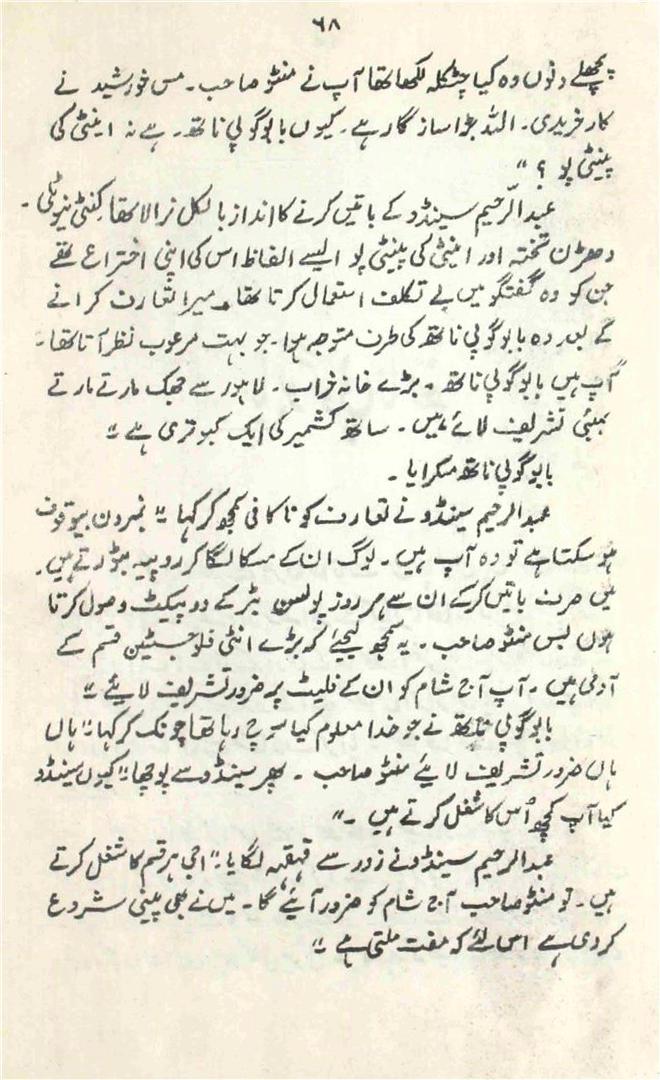 ۶۸
پچھلے دنوں وہ کیا چٹکلہ لکھا تھا آپ نے منٹو صاحب۔ مس خورشید نے
کار خریدی۔ اللہ بڑا ساز گار ہے۔ کیوں بابو گوپی ناتھ۔ ہے نہ اینٹی کی
پینٹی پو ؟ "
عبدالرّحیم سینڈو کے باتیں کرنے کا انداز بالکل نرالا تھا کنٹی نیوٹلی۔
دھڑن تختہ اور اینٹی کی پینٹی پو ایسے الفاظ اس کی اپنی اختراع تھے
جن کو وہ گفتگو میں بے تکلف استعمال کرتا تھا۔ میرا تعارف کرانے
کے بعد وہ بابو گوپی ناتھ کی طرف متوجہ ہوا۔ جو بہت مرعوب نظر آتا تھا۔
آپ ہیں بابو گوپی ناتھ۔ بڑے خانہ خراب۔ لاہور سے جھک مارتے مارتے
بمبئی تشریف لائے ہیں۔ ساتھ کشمیر کی ایک کبوتری ہے "
بابو گوپی ناتھ مسکرایا۔
عبدالرحیم سینڈو نے تعارف کو ناکافی سمجھ کر کہا " نمبر ون بیوقوف
ہو سکتا ہے تو وہ آپ ہیں۔ لوگ ان کے مسکا لگا کر روپیہ بٹورتے ہیں۔
میں صرف باتیں کر کے ان سے ہر روز پولسن بٹر کے دو پیکٹ وصول کرتا
ہوں بس منٹو صاحب۔ یہ سمجھ لیجیئے کہ بڑے انٹی فلو جسٹین قسم کے
آدمی ہیں۔ آپ آج شام کو ان کے فلیٹ پر ضرور تشریف لائیے "
بابو گوپی ناتھ نے جو خدا معلوم کیا سوچ رہا تھا چونک کر کہا " ہاں
ہاں ضرور تشریف لائیے منٹو صاحب۔ پھر سینڈو سے پوچھا " کیوں سینڈو
کیا آپ کچھ اُس کا شغل کرتے ہیں۔"
عبدالرحیم سینڈو نے زور سے قہقہہ لگایا۔" اجی ہر قسم کا شغل کرتے
ہیں۔ تو منٹو صاحب آج شام کو ضرور آئیے گا۔ میں نے بھی پینی شروع
کر دی ہے اس لئے کہ مفت ملتی ہے "